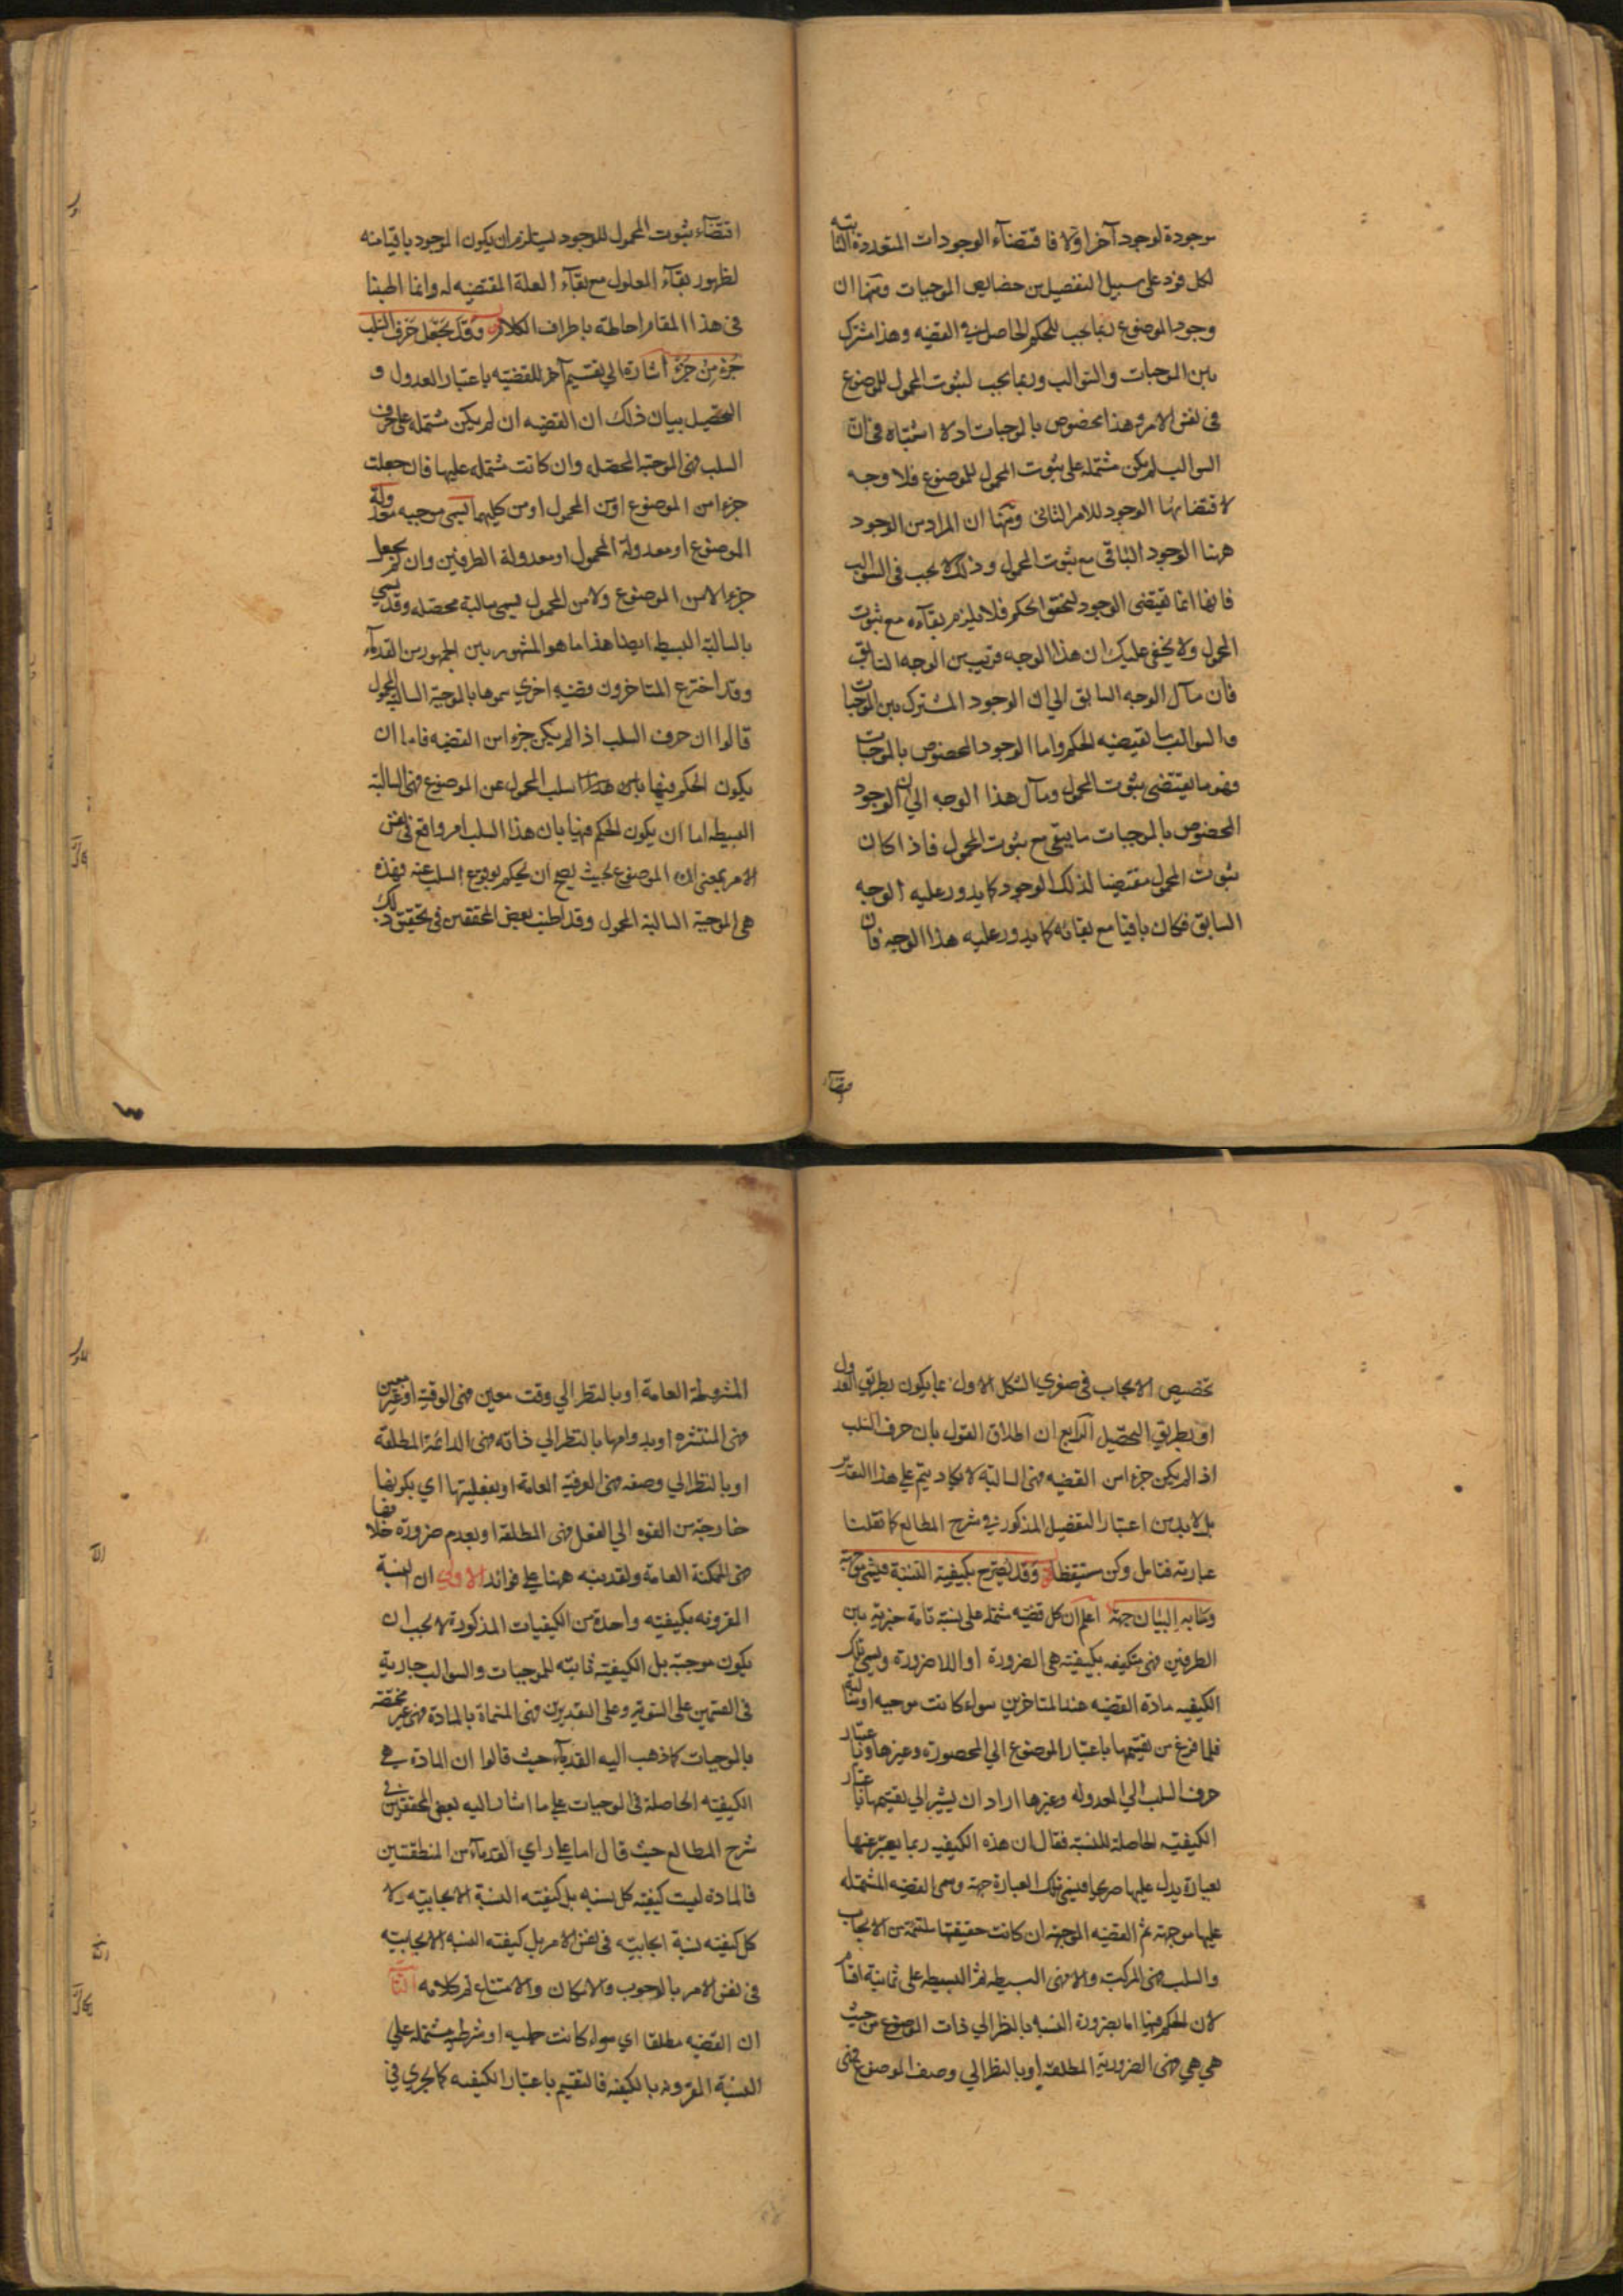 موجودة لوجود آخر اولا فاقتضاء الوجودات المتعددة الثابتة
لكل فرد على سبيل التفصيل من خصايص الموجبات ومنها ان
وجود الموضوع ربما يجب للحكم الحاصل في القضيه وهذا مشترك
بين الموجبات والسوالب وربما يجب لثبوت المحمول للموضوع
في نفس الامر وهذا مخصوص بالموجبات اذ لا اشتباه في ان
السوالب لم يكن مشتمله على ثبوت المحمول للموضوع فلا وجه
لاقتضائها الوجود للامر الثاني ومنها ان المراد من الوجود
ههنا الوجود الباقي مع ثبوت المحمول وذلك لا يجب في السوالب
فانها انما تقتضى الوجود لتحقق الحكم فلا يلزم بقاءه مع ثبوت
المحمول ولا يخفى عليك ان هذا الوجه قريب من الوجه السابق
فان مآل الوجه السابق الي ان الوجود المشترك بين الموجبات
والسوالب ما يقتضيه الحكم واما الوجود المخصوص بالموجبات
فهو ما يقتضى ثبوت المحمول ومآل هذا الوجه الي ان الوجود
المخصوص بالموجبات ما يبقى مع ثبوت المحمول فاذا كان
ثبوت المحمول مقتضيا لذلك الوجود كما يدور عليه الوجه
السابق فكان باقيا مع بقائه كما يدور عليه هذا الوجه فان
اقتضاء ثبوت المحمول للوجود يستلزم ان يكون الوجود باقيا منه
لظهور بقآء المعلول مع بقآء العلة المقتضيه له وانما اطنبنا
في هذا المقام احاطة باطراف الكلام وقد يجعل حرف السلب
جزء من جزء اشارة الي تقسيم آخر للقضيه باعتبار العدول و
التحصيل بيان ذلك ان القضيه ان لم يكن مشتمله على حرف
السلب فهى الموجبة المحصله وان كانت مشتمله عليها فان جعلت
جزء من الموضوع او من المحمول او من كليهما يسمى موجبه معدولة
الموضوع او معدولة المحمول او معدولة الطرفين وان لم يجعل
جزء لا من الموضوع ولا من المحمول يسمى سالبة محصله وقد يسمى
بالسالبة البسيطه ايضا هذا ما هو المشهور بين الجمهور من القدمآء
وقد اخترع المتاخرون قضيه اخري سموها بالموجبة السالبة المحمول
قالوا ان حرف السلب اذا لم يكن جزء من القضيه فاما ان
يكون الحكم فيها بان سلب المحمول عن الموضوع فهى السالبة
البسيطه اما ان يكون الحكم فيها بان هذا السلب امر واقع في نفس
الامر بمعنى ان الموضوع بحيث يصح ان يحكم بوقوع السلب عنه فهذه
هى الموجبة السالبة المحمول وقد اطنب بعض المحققين في تحقيق ذلك
تخصيص الايجاب في صغري الشكل الاول بما يكون بطريق العدول
او بطريق التحصيل الرابع ان اطلاق القول بان حرف السلب
اذا لم يكن جزء من القضيه فهى السالبة لا يكاد يتم على هذا التقدير
بل لا بد من اعتبار التفصيل المذكور في شرح المطالع كما نقلنا
عبارته فتامل وكن مستيقظا وقد يصرح بكيفية النسبة فيسمى موجهة
وما به البيان جهة اعلم ان كل قضيه مشتمله على نسبة تامة خبرية بين
الطرفين فهى متكيفه بكيفيته هى الضرورة او اللاضرورة ويسمى تلك
الكيفيه مادة القضيه عند المتاخرين سواء كانت موجبه او سالبة
فلما فرغ من تقسيمها باعتبار الموضوع الي المحصورة وغيرها وباعتبار
حرف السلب الي المعدوله وغيرها اراد ان يشير الي تقسيمها باعتبار
الكيفيته الحاصلة للنسبة فقال ان هذه الكيفيه ربما يعبر عنها
بعبارة يدل عليها صريحا فيسمى تلك العبارة جهة ويسمى القضيه المشتمله
عليها موجهة ثم القضيه الموجهة ان كانت حقيقتها ملتئمة من الايجاب
والسلب فهى المركبة والا فهى البسيطه ثم البسيطه على ثمانية اقسام
لان الحكم فيها اما بضرورة النسبه بالنظر الي ذات الموضوع من حيث
هي هي فهى الضرورية المطلقة او بالنظر الي وصف الموضوع فهى
المشروطة العامة او بالنظر الي وقت معين فهى الوقتيه او غير معين
فهى المنتشره او بدوامها بالنظر الي ذاته فهى الدائمة المطلقة
او بالنظر الي وصفه فهى العرفية العامة او بفعليتها اي بكونها
خارجة من القوه الي الفعل فهى المطلقه او بعدم ضرورة خلافها
فهى الممكنة العامة ولقد نبه ههنا على فوائد الاولي ان النسبة
المقرونه بكيفيته واحدة من الكيفيات المذكورة لا يجب ان
يكون موجبة بل الكيفيته ثابتة للموجبات والسوالب جارية
في القسمين على السوية وعلى التقديرين فهى المسماة بالمادة فهى غير مختصة
بالموجبات كما ذهب اليه القدمآء حيث قالوا ان المادة هي
الكيفيته الحاصلة في الموجبات على ما اشار اليه بعض المحققين في
شرح المطالع حيث قال اما على راي القدمآء من المنطقيين
فالمادة ليست كيفية كل نسبه بل كيفيته النسبة الايجابيه ولا
كل كيفيته نسبة ايجابيه في نفس الامر بل كيفيته النسبه الايجابيه
في نفس الامر بالوجوب والامكان والامتناع تم كلامه
ان القضيه مطلقا اي سواء كانت حمليه او شرطيه مشتمله على
النسبة المقرونه بالكيفيه فالتقسيم باعتبار الكيفيه كما يجري في